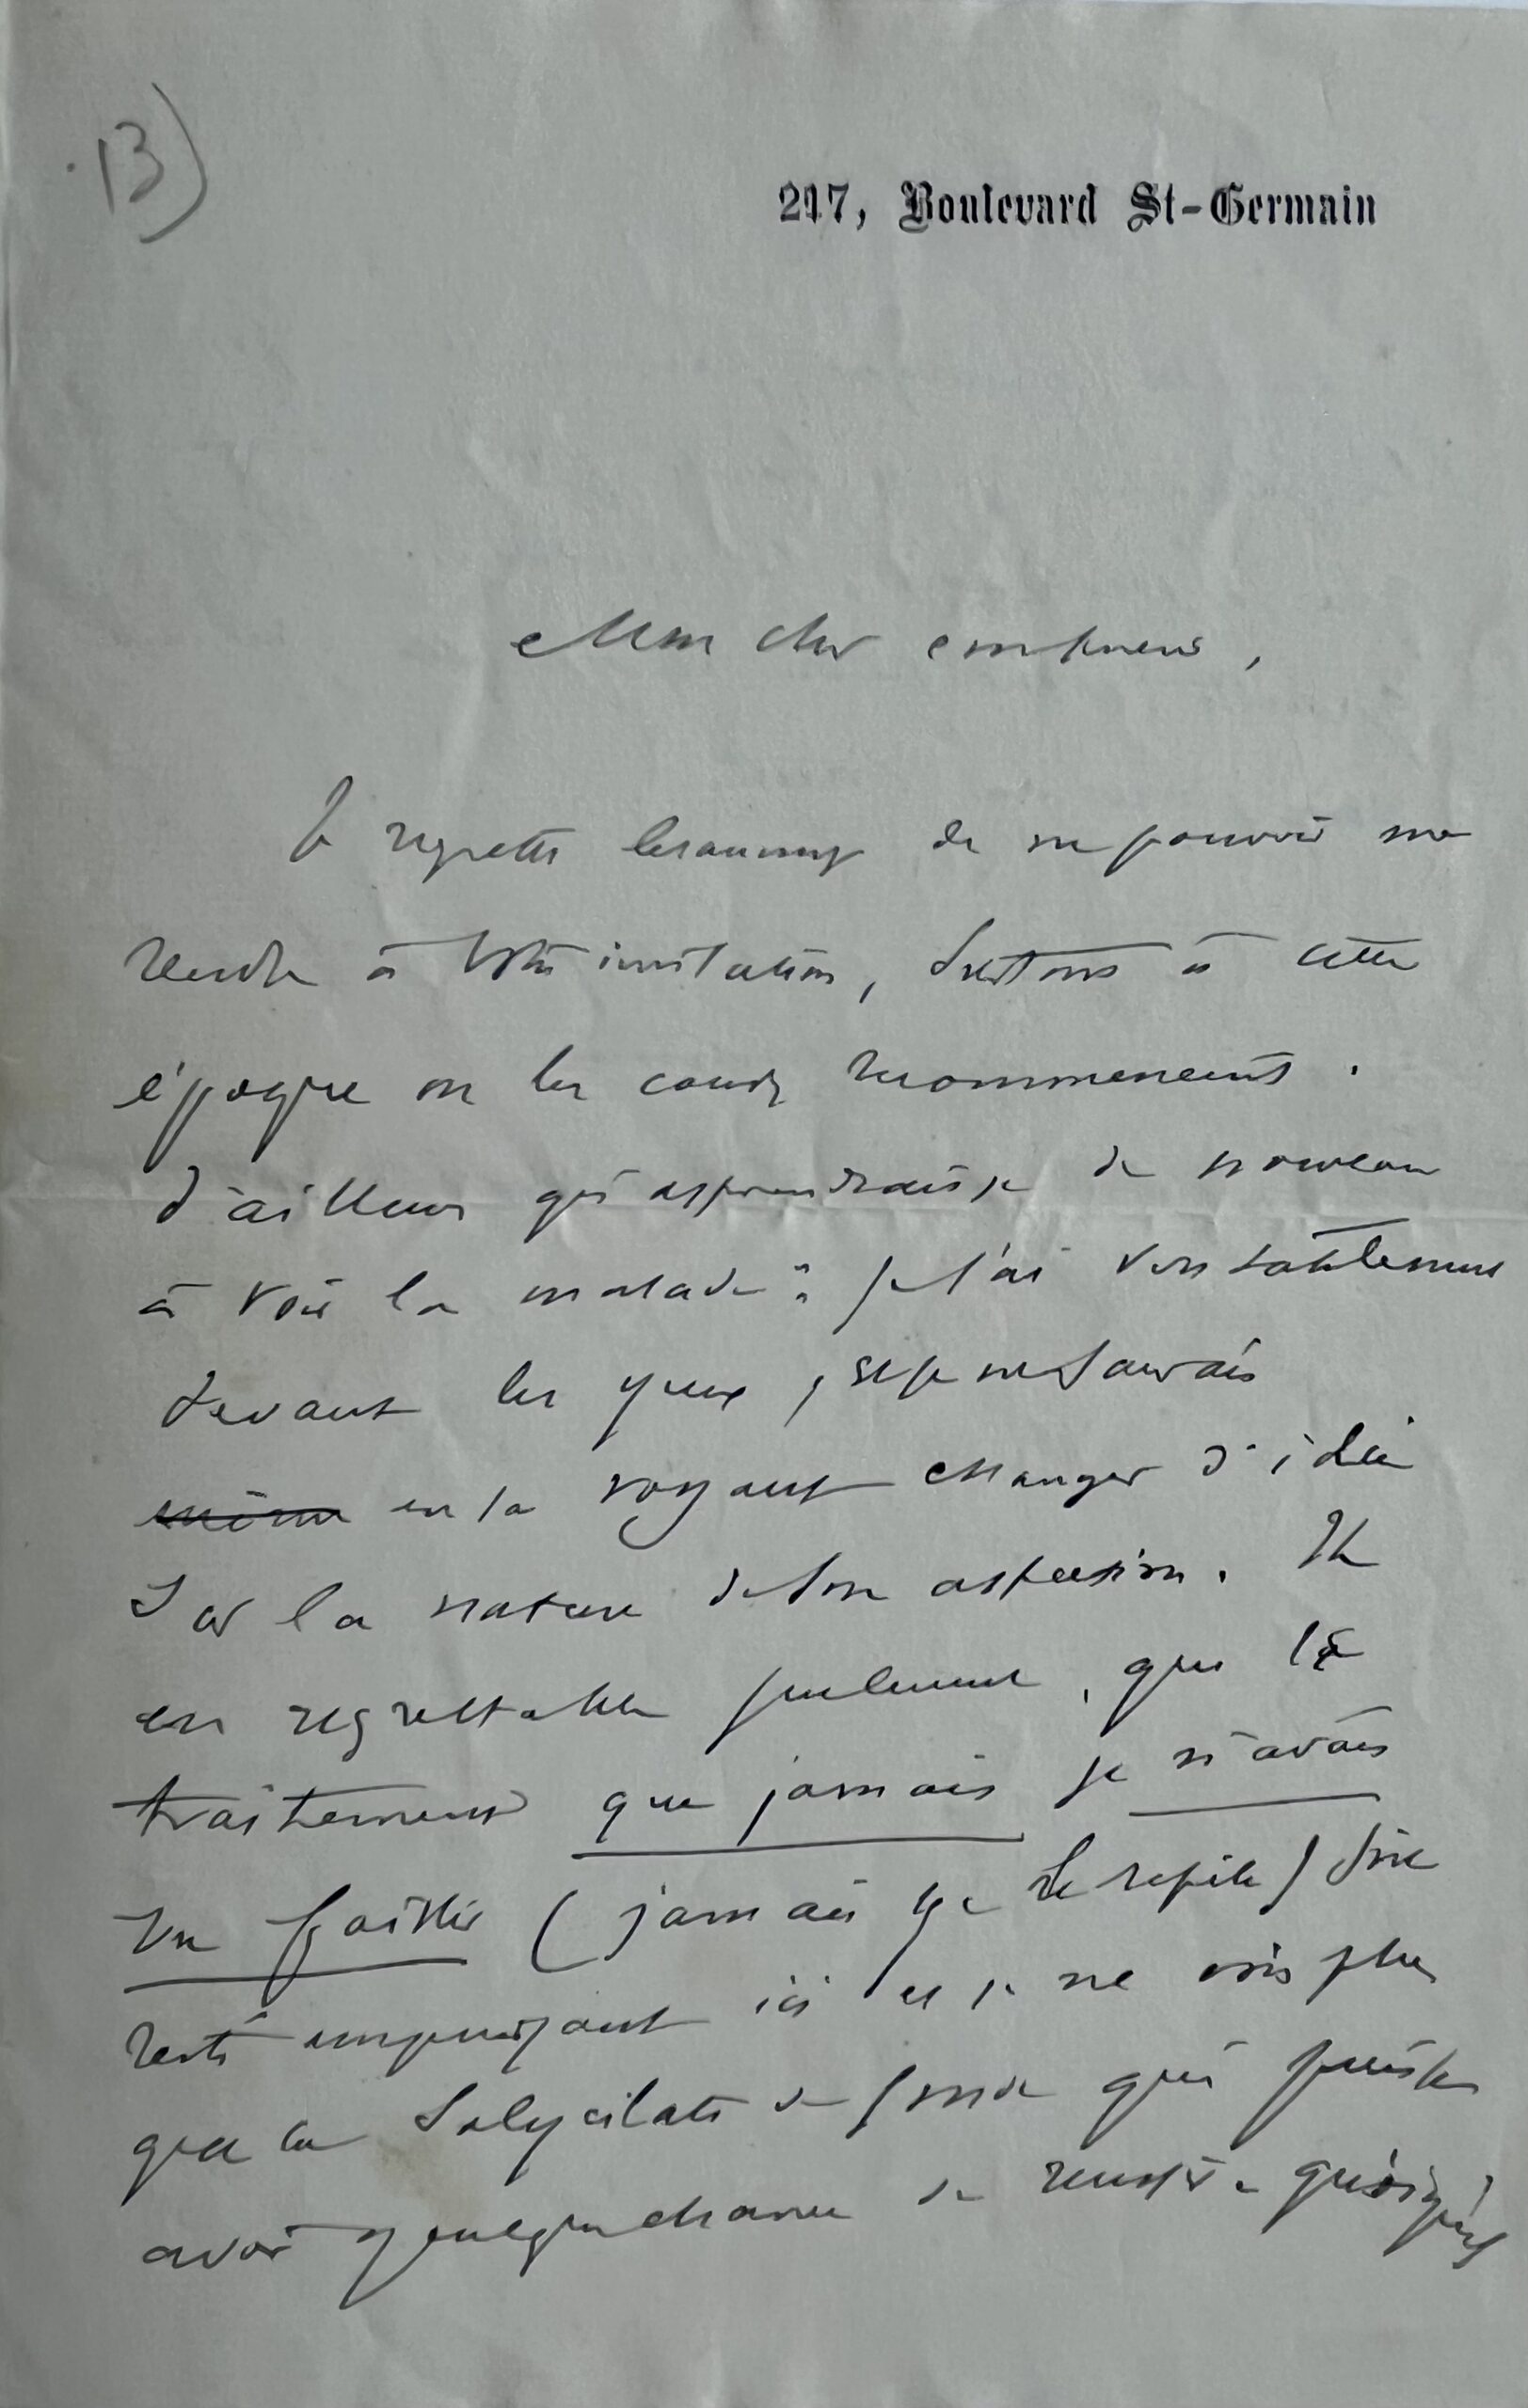 13)
217, Boulevard St-Germain
Mon cher confrère,
Je regrette beaucoup de ne pouvoir me
rendre à votre invitation, surtout à cette
époque où les cours recommencent.
D'ailleurs qu'apprendrais-je de nouveau
à voir la malade? Je l'ai véritablement
devant les yeux, et je ne saurais
même en la voyant changer d'idée
sur la nature de son affection. Il
est regrettable seulement, que le
traitement que jamais je n'avais
vu faillir (jamais je le répète) soit
resté impuissant ici et je ne vois plus
que le Salycilate de soude qui puisse
avoir quelque chance de réussir